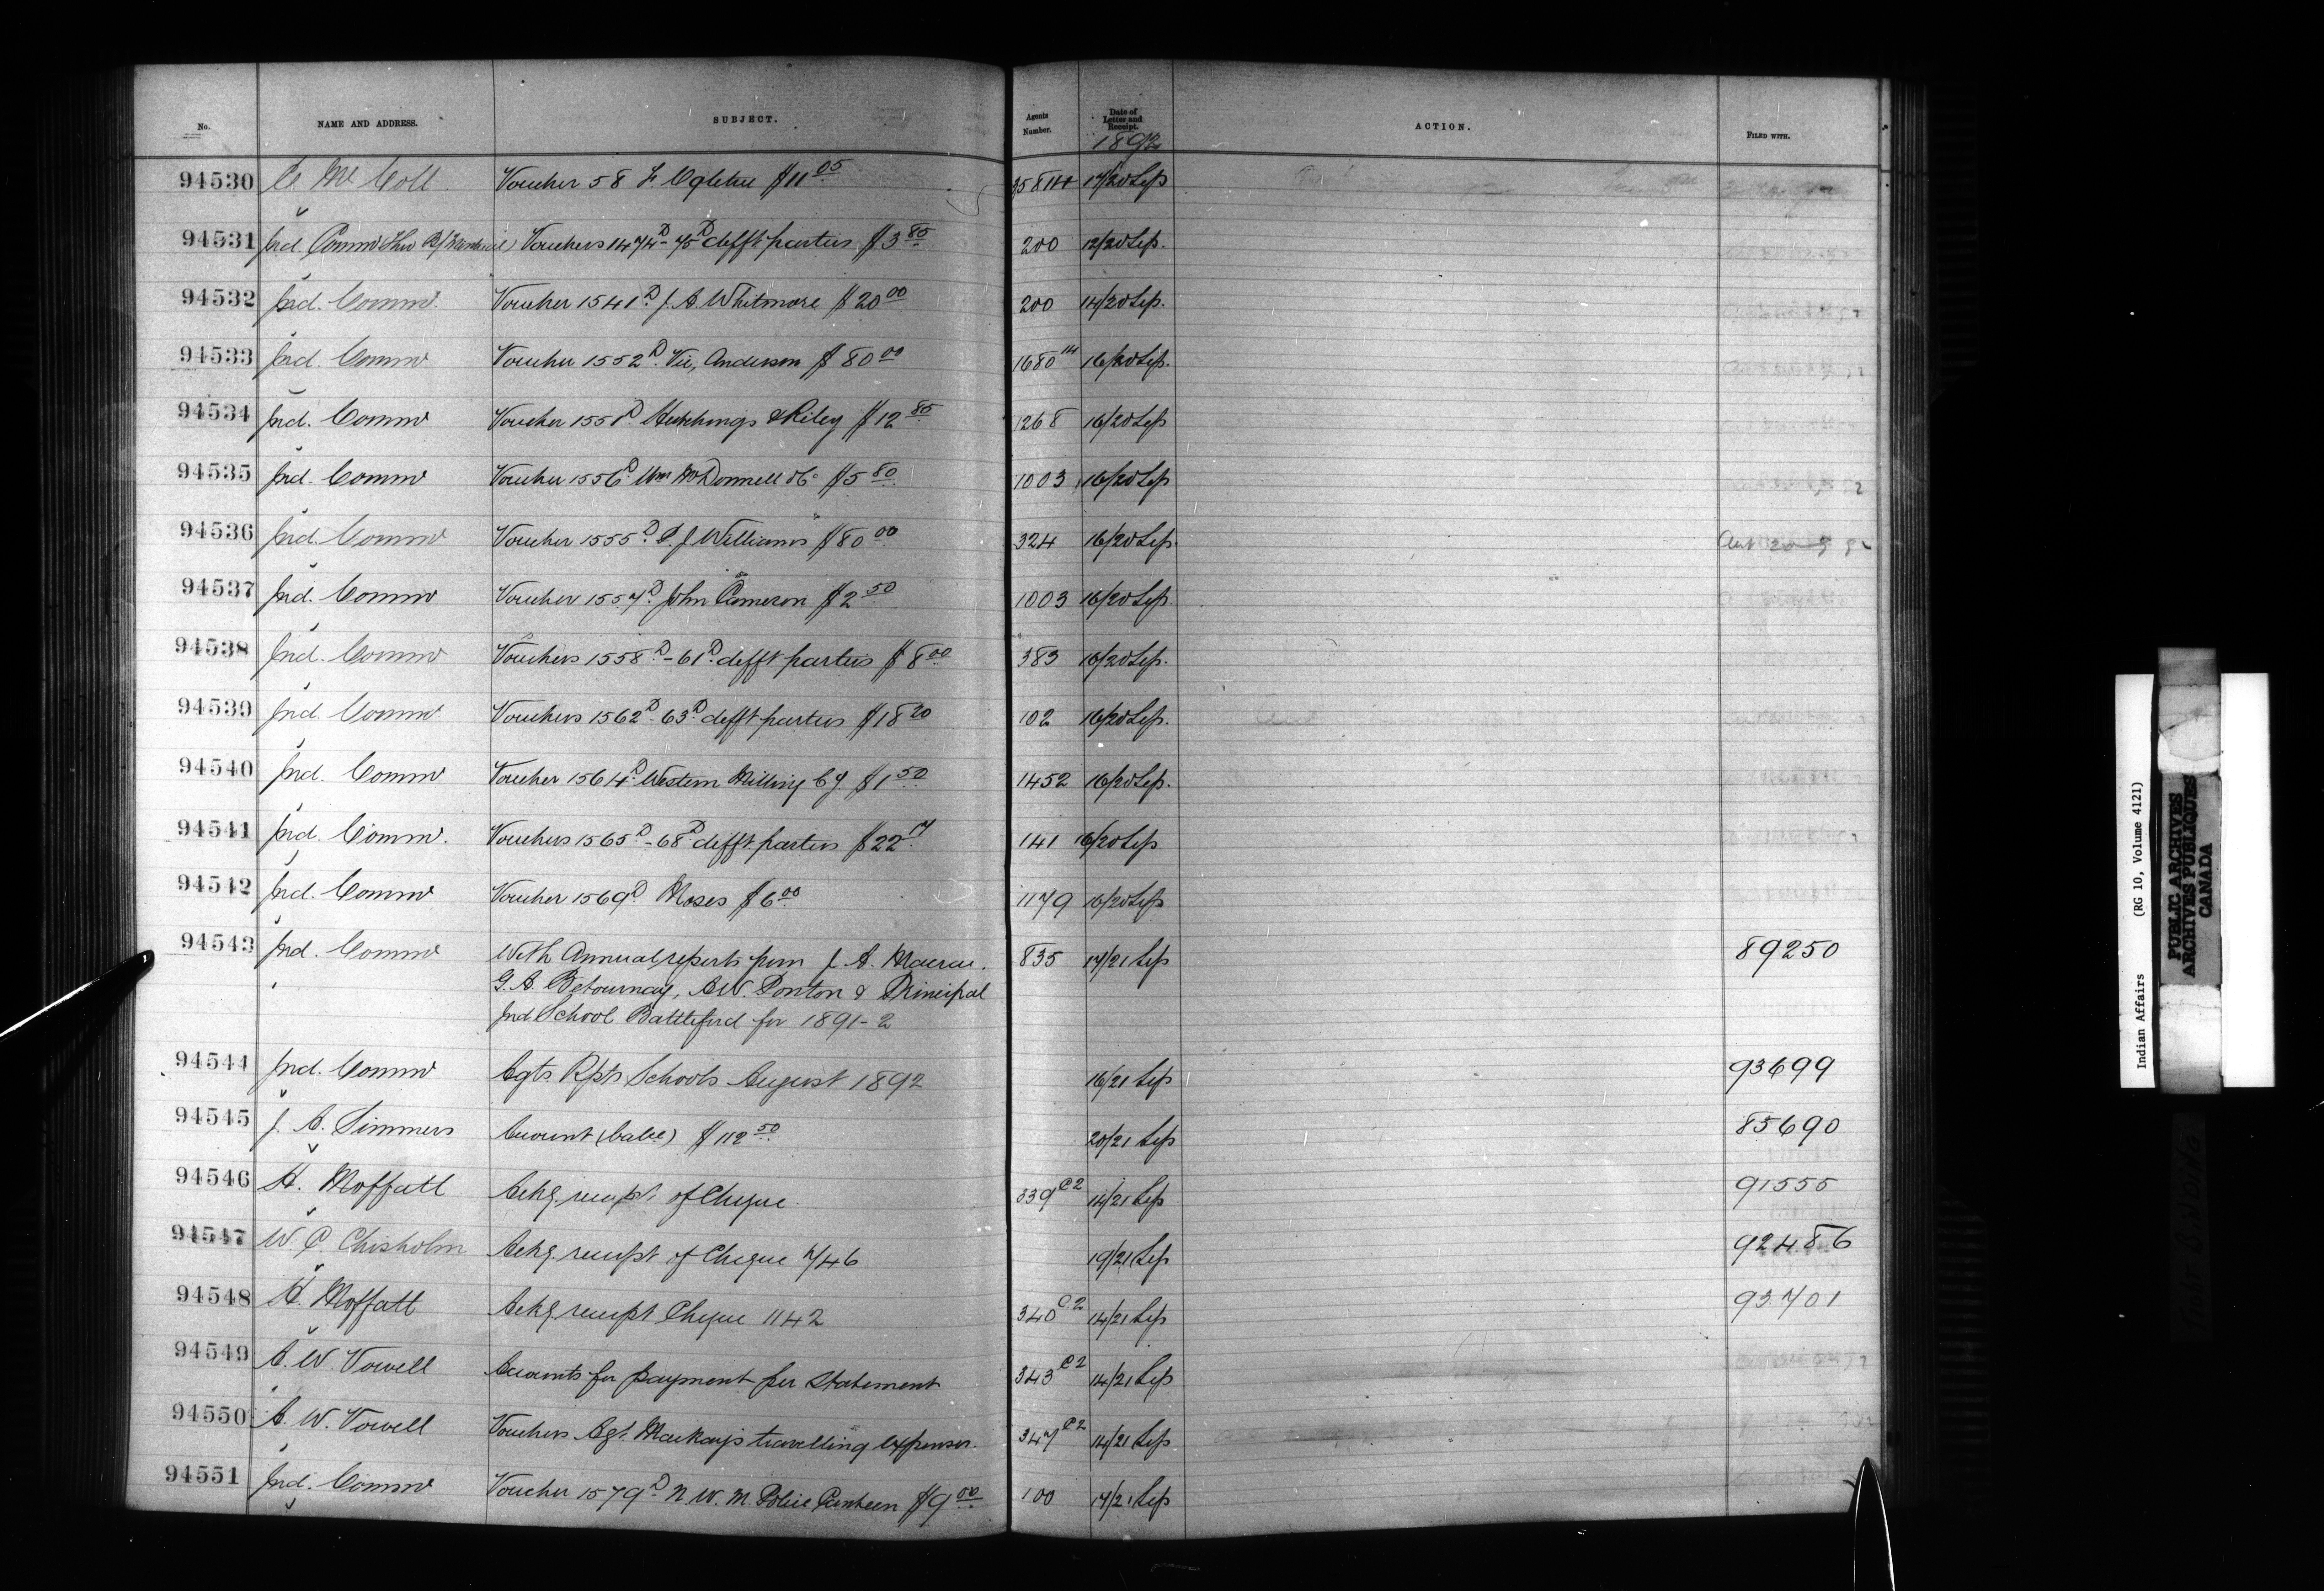 No. NAME AND ADDRESS. SUBJECT. Agents Number. Date of Letter and Receipt. ACTION. FILED WITH.
1892
94530 E McColl Voucher 58 L Ogletree $11 05 35814 17/20 Sep
94531 Ind. Commr Vouchers 1474 D - 75 D difft parties $3 85 200 12/20 Sep.
94532 Ind. Commr. Voucher 1541 D J. A. Whitmore $20 00 200 14/20 Sep.
94533 Ind. Commr Voucher 1552 D Vic, Anderson $80 00 1680 14 16/20 Sep.
94534 Ind. Commr Voucher 1551 D Hutchings & Riley $12 85 1268 16/20 Sep
94535 Ind. Commr Voucher 1556 D Wm McDonnell &Co $5 80 1003 16/20 Sep
94536 Ind. Commr Voucher 1555 D J Williams $80 00 324 16/20 Sep.
94537 Ind. Commr Voucher 1557 D John Cameron $2 50 1003 16/20 Sep.
94538 Ind. Commr Vouchers 1558 D - 61 D difft parties $8 00 383 16/20 Sep.
94539 Ind. Commr Vouchers 1562 D - 63 D difft parties $18 20 102 16/20 Sep.
94540 Ind. Commr Voucher 1564 D Western Milling Cy. $1 50 1452 16/20 Sep.
94541 Ind. Commr. Vouchers 1565 D - 68 D difft parties $22 17 141 16/20 Sep
94542 Ind. Commr Voucher 1569 D Moses $6 00 1179 16/20 Sep
94543 Ind. Commr With Annual reports from J. A. Macrae. 835 17/21 Sep 89250
G. A. Betournay, A.W. Ponton & Principal
Ind School Battleford for 1891-2
94544 Ind. Commr Agts Rpts Schools August 1892 16/21 Sep 93699
94545 J. A. Simmers Account $112 50 20/21 Sep 85690
94546 H. Moffatt Ackg. receipt of Cheque. 339 C2 14/21 Sep 91555
94547 W. P. Chisholm Ackg. receipt of Cheque 746 19/21 Sep 92486
94548 H. Moffatt Ackg receipt Cheque 1142 340 C.2 14/21 Sep 93701
94549 A. W. Vowell Accounts for payment per Statement 343 C2 14/21 Sep
94550 A. W. Vowell Vouchers Agt. Mackay's travelling expenses. 347 C2 14/21 Sep
94551 Ind. Commr Voucher 1579 D N. W. M. Police Canteen $9 00 100 17/21 Sep
Indian Affairs (RG 10, Volume 4121)
PUBLIC ARCHIVES
ARCHIVES PUBLIQUES
CANADA